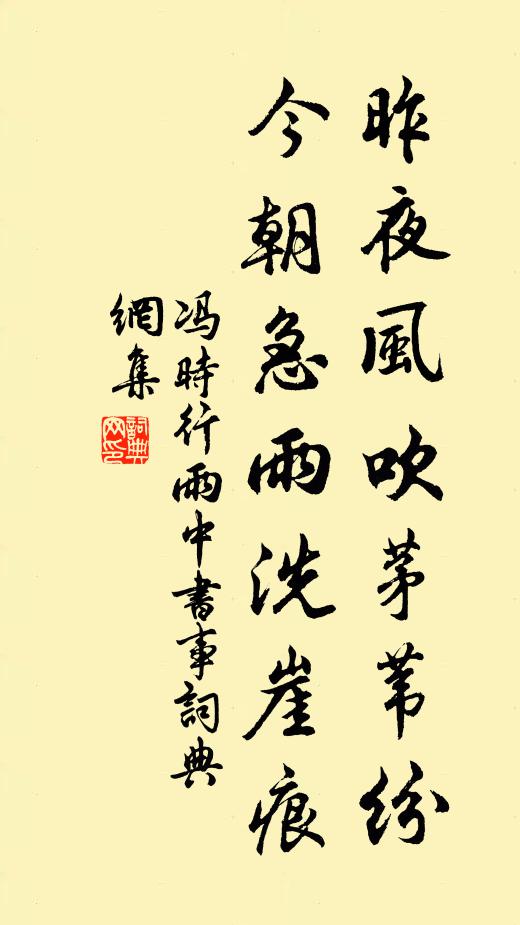 昨夜風吹茅苇纷
今朝急雨洗崖痕
冯時行雨中書事詞典
網集
詞典网印